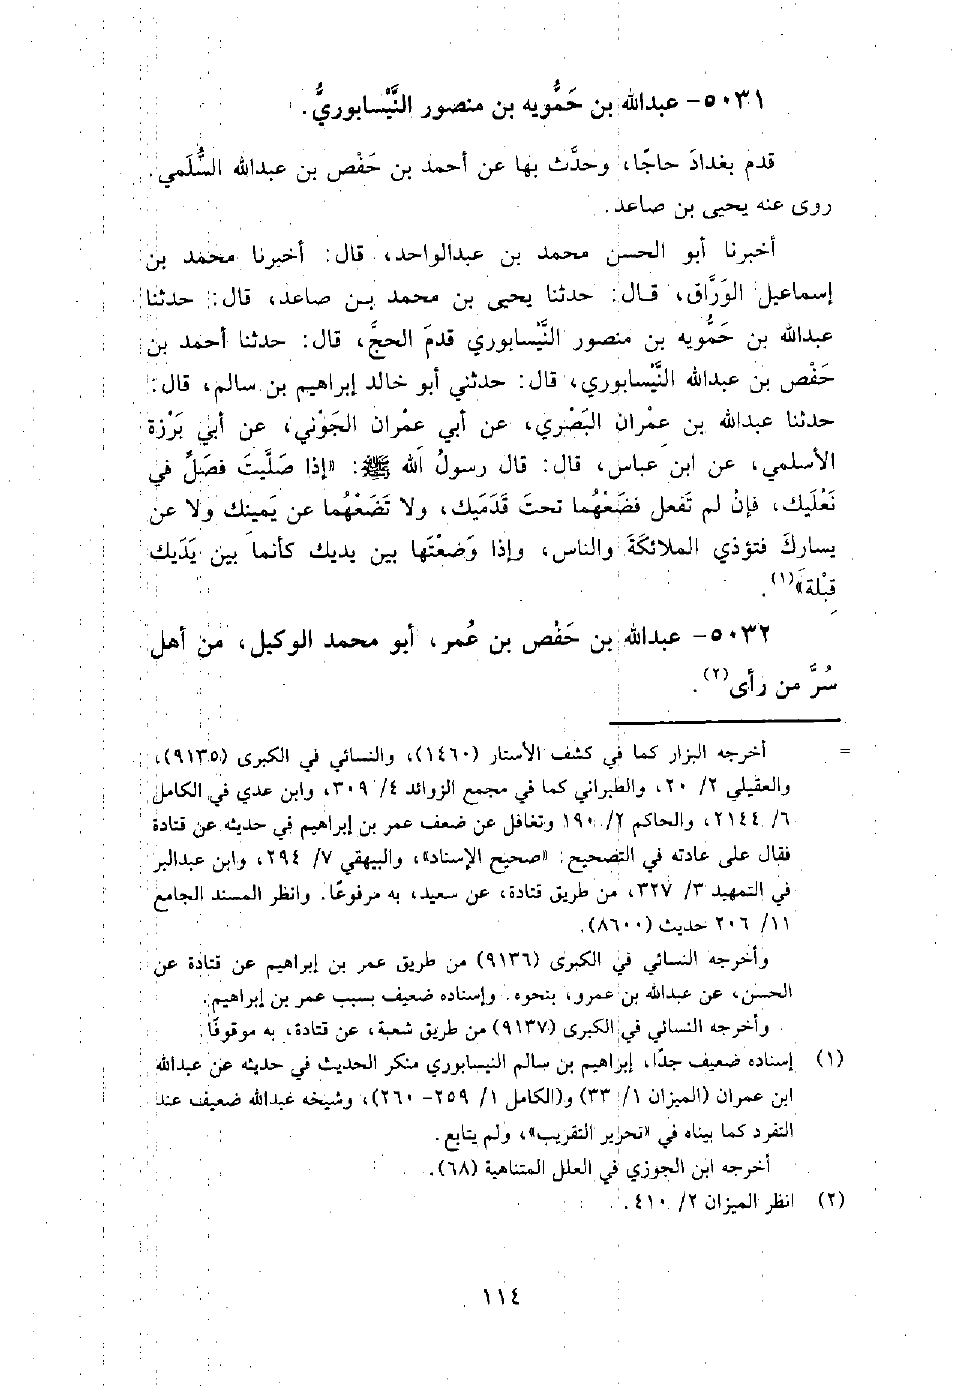 ٥٠٣١- عبدالله بن حَمُّويه بن منصور النَّيْسابوريُّ.
قدم بغدادَ حاجًا، وحدَّث بها عن أحمد بن حَفْص بن عبدالله السُّلَمي.
روى عنه يحيى بن صاعد.
أخبرنا أبو الحسن محمد بن عبدالواحد، قال: أخبرنا محمد بن
إسماعيل الورَّاق، قال: حدثنا يحيى بن محمد بن صاعد، قال: حدثنا
عبدالله بن حَمُّويه بن منصور النَّيْسابوري قدمَ الحجَّ، قال: حدثنا أحمد بن
حَفْص بن عبدالله النَّيْسابوري، قال: حدثني أبو خالد إبراهيم بن سالم، قال:
حدثنا عبدالله بن عمْران البَصْري، عن أبي عمْران الجَوْني، عن أبي بَرْزة
الأسلمي، عن ابن عباس، قال: قال رسولُ الله ﷺ: «إذا صَلَّيتَ فصَلِّ في
نَعْلَيك، فإنْ لم تَفعل فضَعْهُما تحتَ قَدَمَيك، ولا تَضَعْهُما عن يَمينك ولا عن
يسارك فتؤذي الملائكةَ والناس، وإذا وَضعْتَها بين يديك كأنما بين يَدَيك
قبْلة»(١).
٥٠٣٢- عبدالله بن حَفْص بن عُمر، أبو محمد الوكيل، من أهل
سُرَّ من رأى(٢).
= أخرجه البزار كما في كشف الأستار (١٤٦٠)، والنسائي في الكبرى (٩١٣٥)،
والعقيلي ٢/ ٢٠، والطبراني كما في مجمع الزوائد ٤/ ٣٠٩، وابن عدي في الكامل
٦/ ٢١٤٤، والحاكم ٢/ ١٩٠ وتغافل عن ضعف عمر بن إبراهيم في حديثه عن قتادة
فقال على عادته في التصحيح: «صحيح الإسناد»، والبيهقي ٧/ ٢٩٤، وابن عبدالبر
في التمهيد ٣/ ٣٢٧، من طريق قتادة، عن سعيد، به مرفوعًا. وانظر المسند الجامع
١١/ ٢٠٦ حديث (٨٦٠٠).
وأخرجه النسائي في الكبرى (٩١٣٦) من طريق عمر بن إبراهيم عن قتادة عن
الحسن، عن عبدالله بن عمرو، بنحوه. وإسناده ضعيف بسبب عمر بن إبراهيم.
وأخرجه النسائي في الكبرى (٩١٣٧) من طريق شعبة، عن قتادة، به موقوفًا.
(١) إسناده ضعيف جدًا، إبراهيم بن سالم النيسابوري منكر الحديث في حديثه عن عبدالله
ابن عمران (الميزان ١/ ٣٣) و(الكامل ١/ ٢٥٩- ٢٦٠)، وشيخه عبدالله ضعيف عند
التفرد كما بيناه في «تحرير التقريب»، ولم يتابع.
أخرجه ابن الجوزي في العلل المتناهية (٦٨).
(٢) انظر الميزان ٢/ ٤١٠.
١١٤